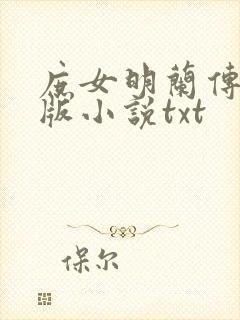 庶女明蘭傳
版小說txt
保尔